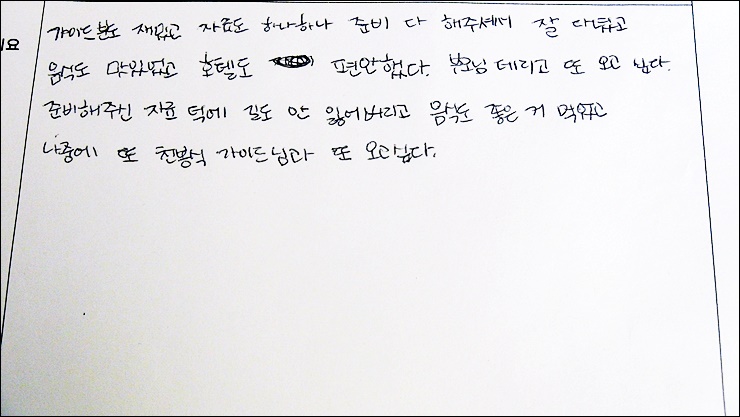 가이드분도 재밌고 자료도 하나하나 준비 다 해주셔서 잘 다녔고
음식도 맛있었고 호텔도 편안했다. 부모님 데리고 또 오고 싶다.
준비해주신 자료 덕에 길도 안 잃어버리고 음식도 좋은 거 먹었고
나중에 또 천봉식 가이드님과 또 오고싶다.